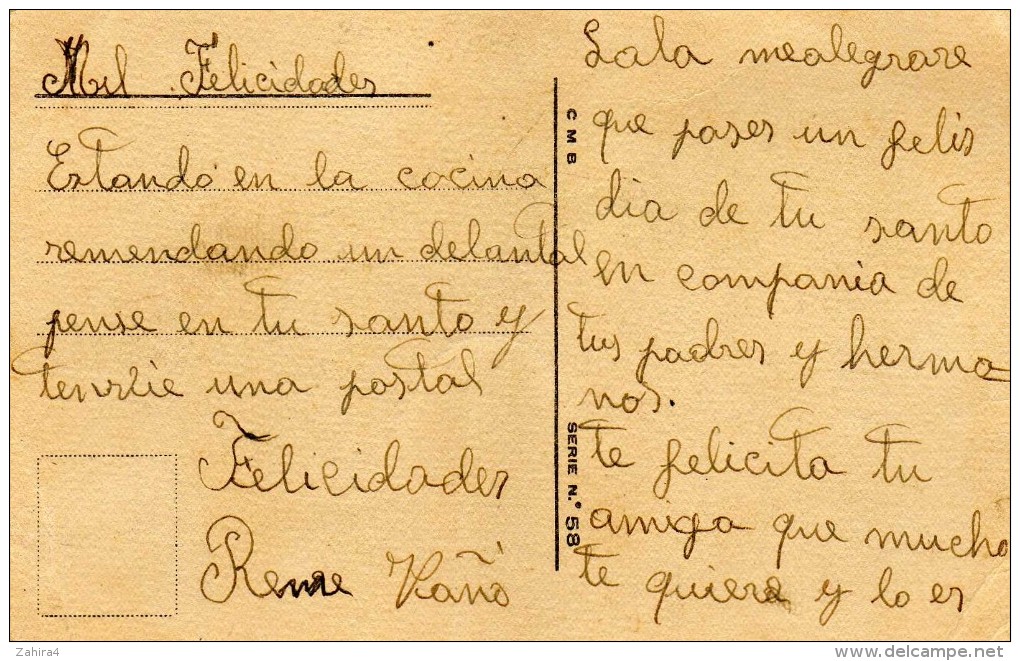 Mil Felicidades
Estando en la cocina
remendando un delantal
pense en tu santo y
tenvie una postal
Felicidades
Reme Kaño
C M B
SERIE N.º 58
Lala mealegrare
que pases un felis
dia de tu santo
en compania de
tus padres y herma
nos.
te felicita tu
amiga que mucho
te quiere y lo es
Zahira4
www.delcampe.net